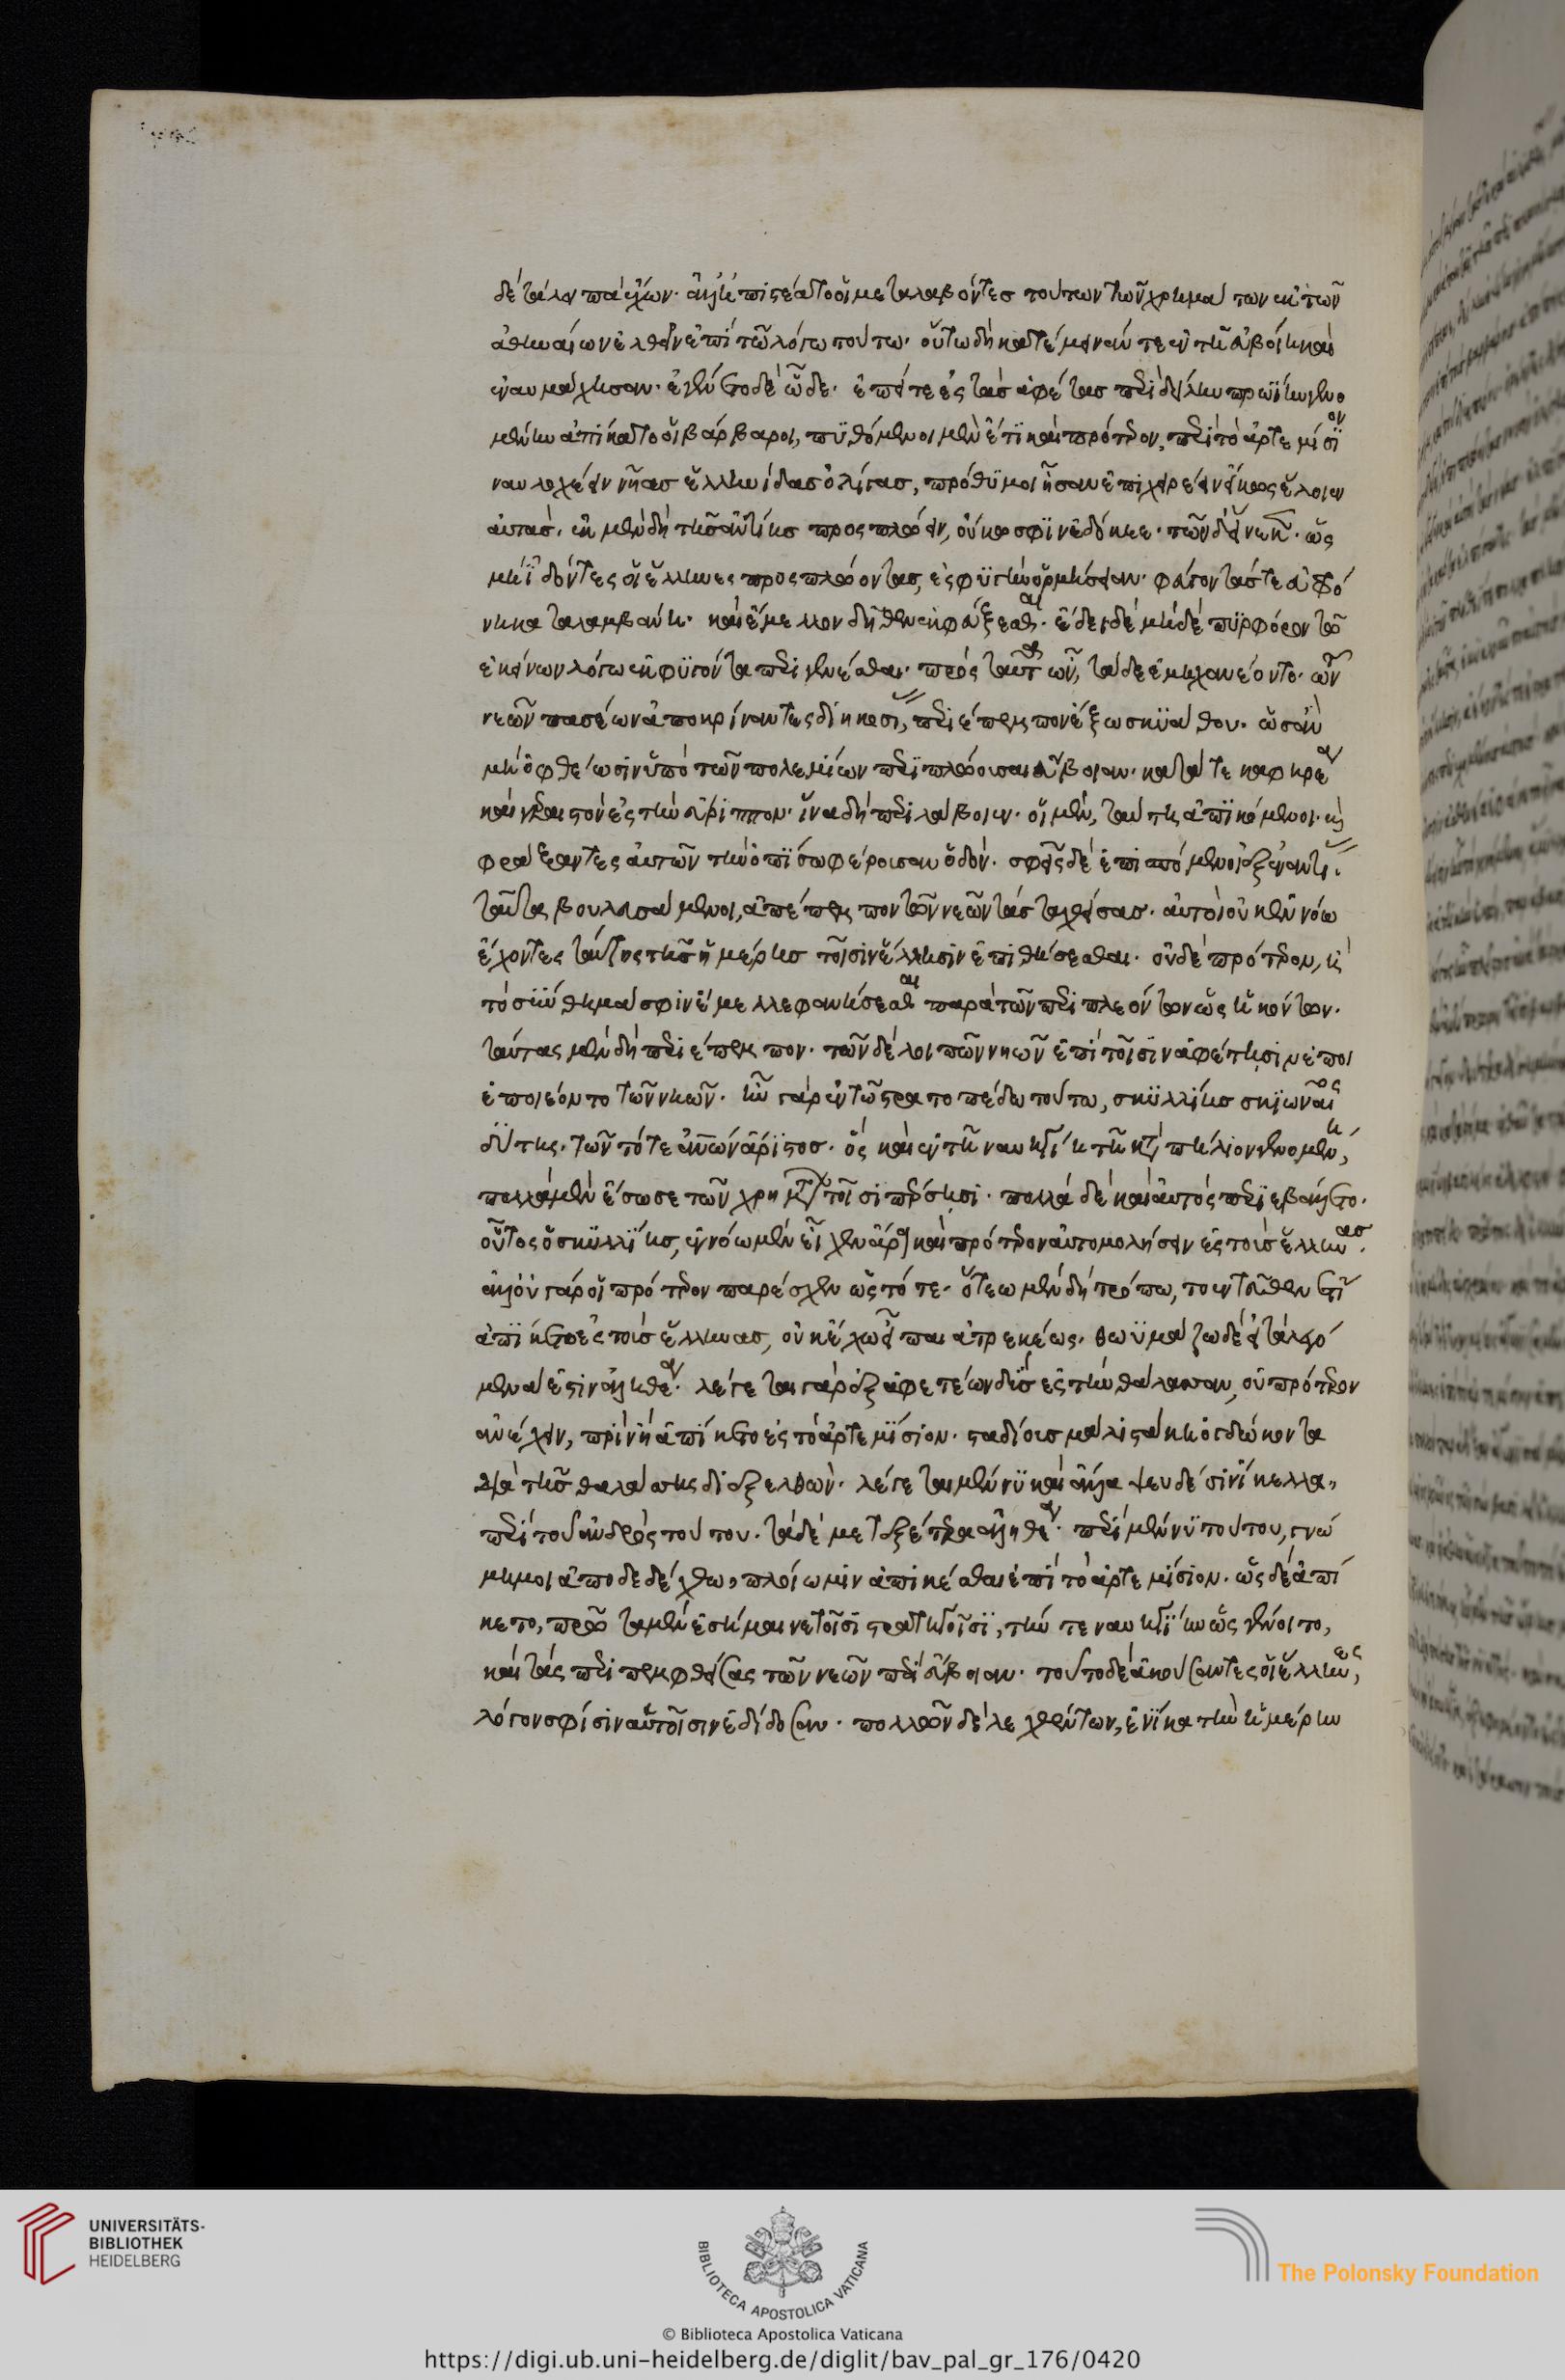 δὲ τὰ λοιπὰ ἔχων· ἀλλ' ἠπιστέατο οἱ μεταλαβόντες τούτων τῶν χρημάτων ἐκ τῶν
ἀθηναίων ἐλθεῖν ἐπὶ τῶ λόγω τούτω· οὕτω δὴ κατέμεινάν τε ἐν τῆ εὐβοίη καὶ
ἐναυμάχησαν· ἐγένετο δὲ ὧδε· ἐπείτε ἐς τὰς ἀφέτας περὶ δείλην πρωΐην γενο
μένην ἀπίκατο οἱ βάρβαροι, πυθόμενοι μὲν ἔτι καὶ πρότερον, περὶ τὸ ἀρτεμίσιον
ναυλοχέειν νῆας ἑλληνίδας ὀλίγας, πρόθυμοι ἦσαν ἐπιχειρέειν εἴκως ἕλοιεν
αὐτάς. ἐκ μὲν δὴ τῆς ἀντίης προσπλώειν, οὔκω σφιν ἐδόκεε· τῶνδε εἵνεκα· ὥς
μὴ ἰδόντες οἱ ἕλληνες προσπλώοντας, ἐς φυγὴν ὁρμήσειαν· φεύγοντάς τε εὐφρό
νη καταλαμβάνη· καὶ ἔμελλον δῆθεν ἐκφεύξεσθαι· ἔδει δὲ μηδὲ πυρφόρον τῶ
ἐκείνων λόγω ἐκφυγόντα περιγενέσθαι· πρὸς ταῦτα ὦν, τάδε ἐμηχανέοντο· τῶν
νεῶν πασέων ἀποκρίναντες διηκοσίας, περιέπεμπον ἔξω σκιάθου· ὡς ἂν
μὴ ὀφθέωσιν ὑπὸ τῶν πολεμίων περιπλώουσαι εὔβοιαν· κατά τε καφηρέα
καὶ γεραιστὸν ἐς τὸν εὔριππον· ἵνα δὴ περιλάβοιεν· οἱ μὲν, ταύτη ἀπικόμενοι· καὶ
φράξαντες αὐτῶν τὴν ὀπίσω φέρουσαν ὁδόν· σφεῖς δὲ ἐπισπόμενοι ἐξ ἐναντίης·
ταῦτα βουλευσάμενοι, ἀπέπεμπον τῶν νεῶν τὰς ταχθείσας· αὐτοὶ οὐκ ἐν νόω
ἔχοντες ταύτης τῆς ἡμέρης τοῖσιν ἕλλησιν ἐπιθήσεσθαι· οὐδὲ πρότερον, ἢ
τὸ σύνθημά σφιν ἔμελλε φανήσεσθαι παρὰ τῶν περιπλεόντων ὡς ἡκόντων·
ταύτας μὲν δὴ περιέπεμπον· τῶν δὲ λοιπῶν νηῶν ἐπὶ τοῖσιν ἀφέτησιν ἐποι
ἐποιεῦντο τῶν νηῶν· ἦν γὰρ ἐν τῶ στρατοπέδω τούτω, σκυλλίης σκιωναῖος
δύτης· τῶν τότε ἀνθρώπων ἄριστος· ὃς καὶ ἐν τῆ ναυηγίη τῆ κατὰ πήλιον γενομένη,
πολλὰ μὲν ἔσωσε τῶν χρημάτων τοῖσι πέρσησι· πολλὰ δὲ καὶ αὐτὸς περιεβάλετο·
οὗτος ὁ σκυλλίης, ἐν νόω μὲν εἶχεν ἄρα καὶ πρότερον αὐτομολήσειν ἐς τοὺς ἕλληνας·
ἀλλ' οὐ γάρ οἱ πρότερον παρέσχεν ὡς τότε· ὅτεω μὲν δὴ τρόπω, τὸ ἐνταῦθεν ἔτι
ἀπίκετο ἐς τοὺς ἕλληνας, οὐκ ἔχω εἶπαι ἀτρεκέως. θωυμάζω δὲ εἰ τὰ λεγό
μενα ἐστὶν ἀληθέα· λέγεται γὰρ ἐξ ἀφετέων δὺς ἐς τὴν θάλασσαν, οὐ πρότερον
ἀνέχειν, πρὶν ἢ ἀπίκετο ἐς τὸ ἀρτεμίσιον· σταδίους μάλιστά κη ὀγδώκοντα
διὰ τῆς θαλάσσης διεξελθών· λέγεται μέν νυ καὶ ἄλλα ψευδέσιν ἴκελλα,
περὶ τοῦ ἀνδρὸς τούτου· τὰ δὲ μετεξέτερα ἀληθέα· περὶ μέν νυ τούτου, γνώ
μη μοι ἀποδεδέχθω, πλοίω μιν ἀπικέσθαι ἐπὶ τὸ ἀρτεμίσιον. ὡς δὲ ἀπί
κετο, πρῶτα μὲν ἐσήμαινε τοῖσι στρατηγοῖσι, τήν τε ναυηγίην ὡς γένοιτο,
καὶ τὰς περιπεμφθείσας τῶν νεῶν περὶ εὔβοιαν· τοῦτο δὲ ἀκούσαντες οἱ ἕλληνες,
λόγον σφίσιν αὐτοῖσιν ἐδίδοσαν· πολλῶν δὲ λεχθέντων, ἐνίκα τὴν ἡμέρην
UNIVERSITÄTS-
BIBLIOTHEK
HEIDELBERG
BIBLIOTECA APOSTOLICA VATICANA
© Biblioteca Apostolica Vaticana
The Polonsky Foundation
https://digi.ub.uni-heidelberg.de/diglit/bav_pal_gr_176/0420